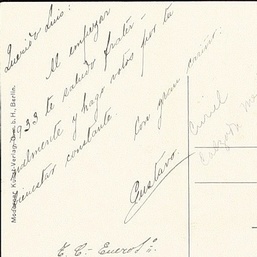 Querido Luis:
Al empezar
1933 te saludo frater-
nalmente y hago votos por tu
constante.
Con gran cariño.
Gustavo.
Moderner Kunst-Verlag G.m.b.H., Berlin.
Curiel
Calzada